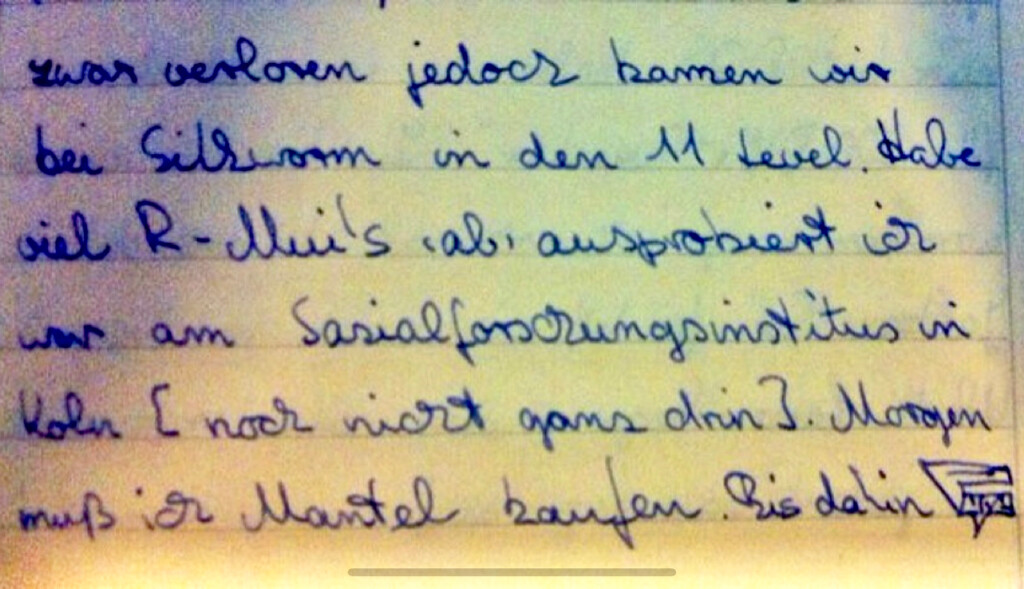 zwar verloren jedoch kamen wir
bei Silkworm in den 11 Level. Habe
viel R-Mui's ausprobiert ich
war am Sozialforschungsinstitus in
Köln [noch nicht ganz drin]. Morgen
muß ich Mantel kaufen. Bis dahin